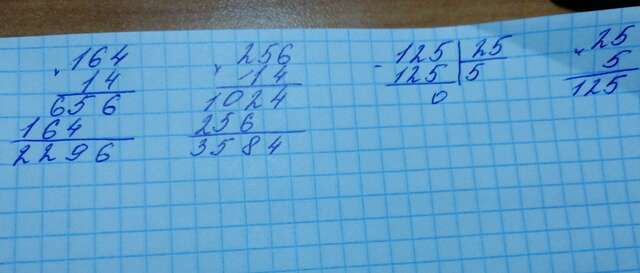 × 164
14
656
164
2296
× 256
14
1024
256
3584
- 125 | 25
125 | 5
0
× 25
5
125